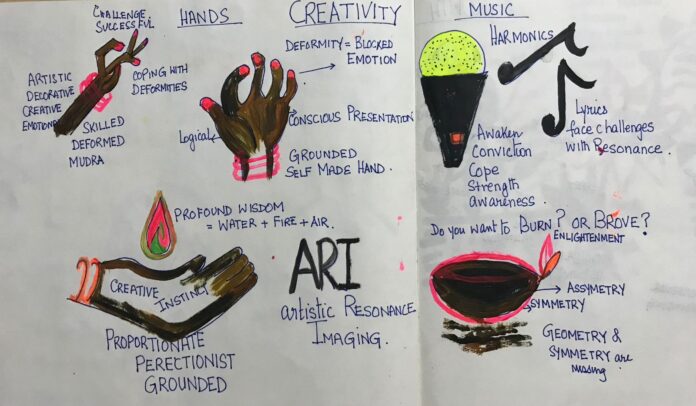 CHALLENGE
SUCCESSFUL
HANDS
CREATIVITY
MUSIC
ARTISTIC
DECORATIVE
CREATIVE
EMOTIONS
COPING WITH
DEFORMITIES
SKILLED
DEFORMED
MUDRA
DEFORMITY = BLOCKED
EMOTION
Logical
CONSCIOUS PRESENTATION
GROUNDED
SELF MADE HAND.
HARMONICS
Awaken
Conviction
Cope
Strength
awareness.
Lyrics
face challenges
with Resonance.
PROFOUND WISDOM
= WATER + FIRE + AIR.
CREATIVE
INSTINCT
PROPORTIONATE
PERECTIONIST
GROUNDED
ARI
artistic RESONANCE
IMAGING.
Do you want to BURN? OR BROVE?
ENLIGHTENMENT
ASSYMETRY
SYMMETRY
GEOMETRY &
SYMMETRY are
missing